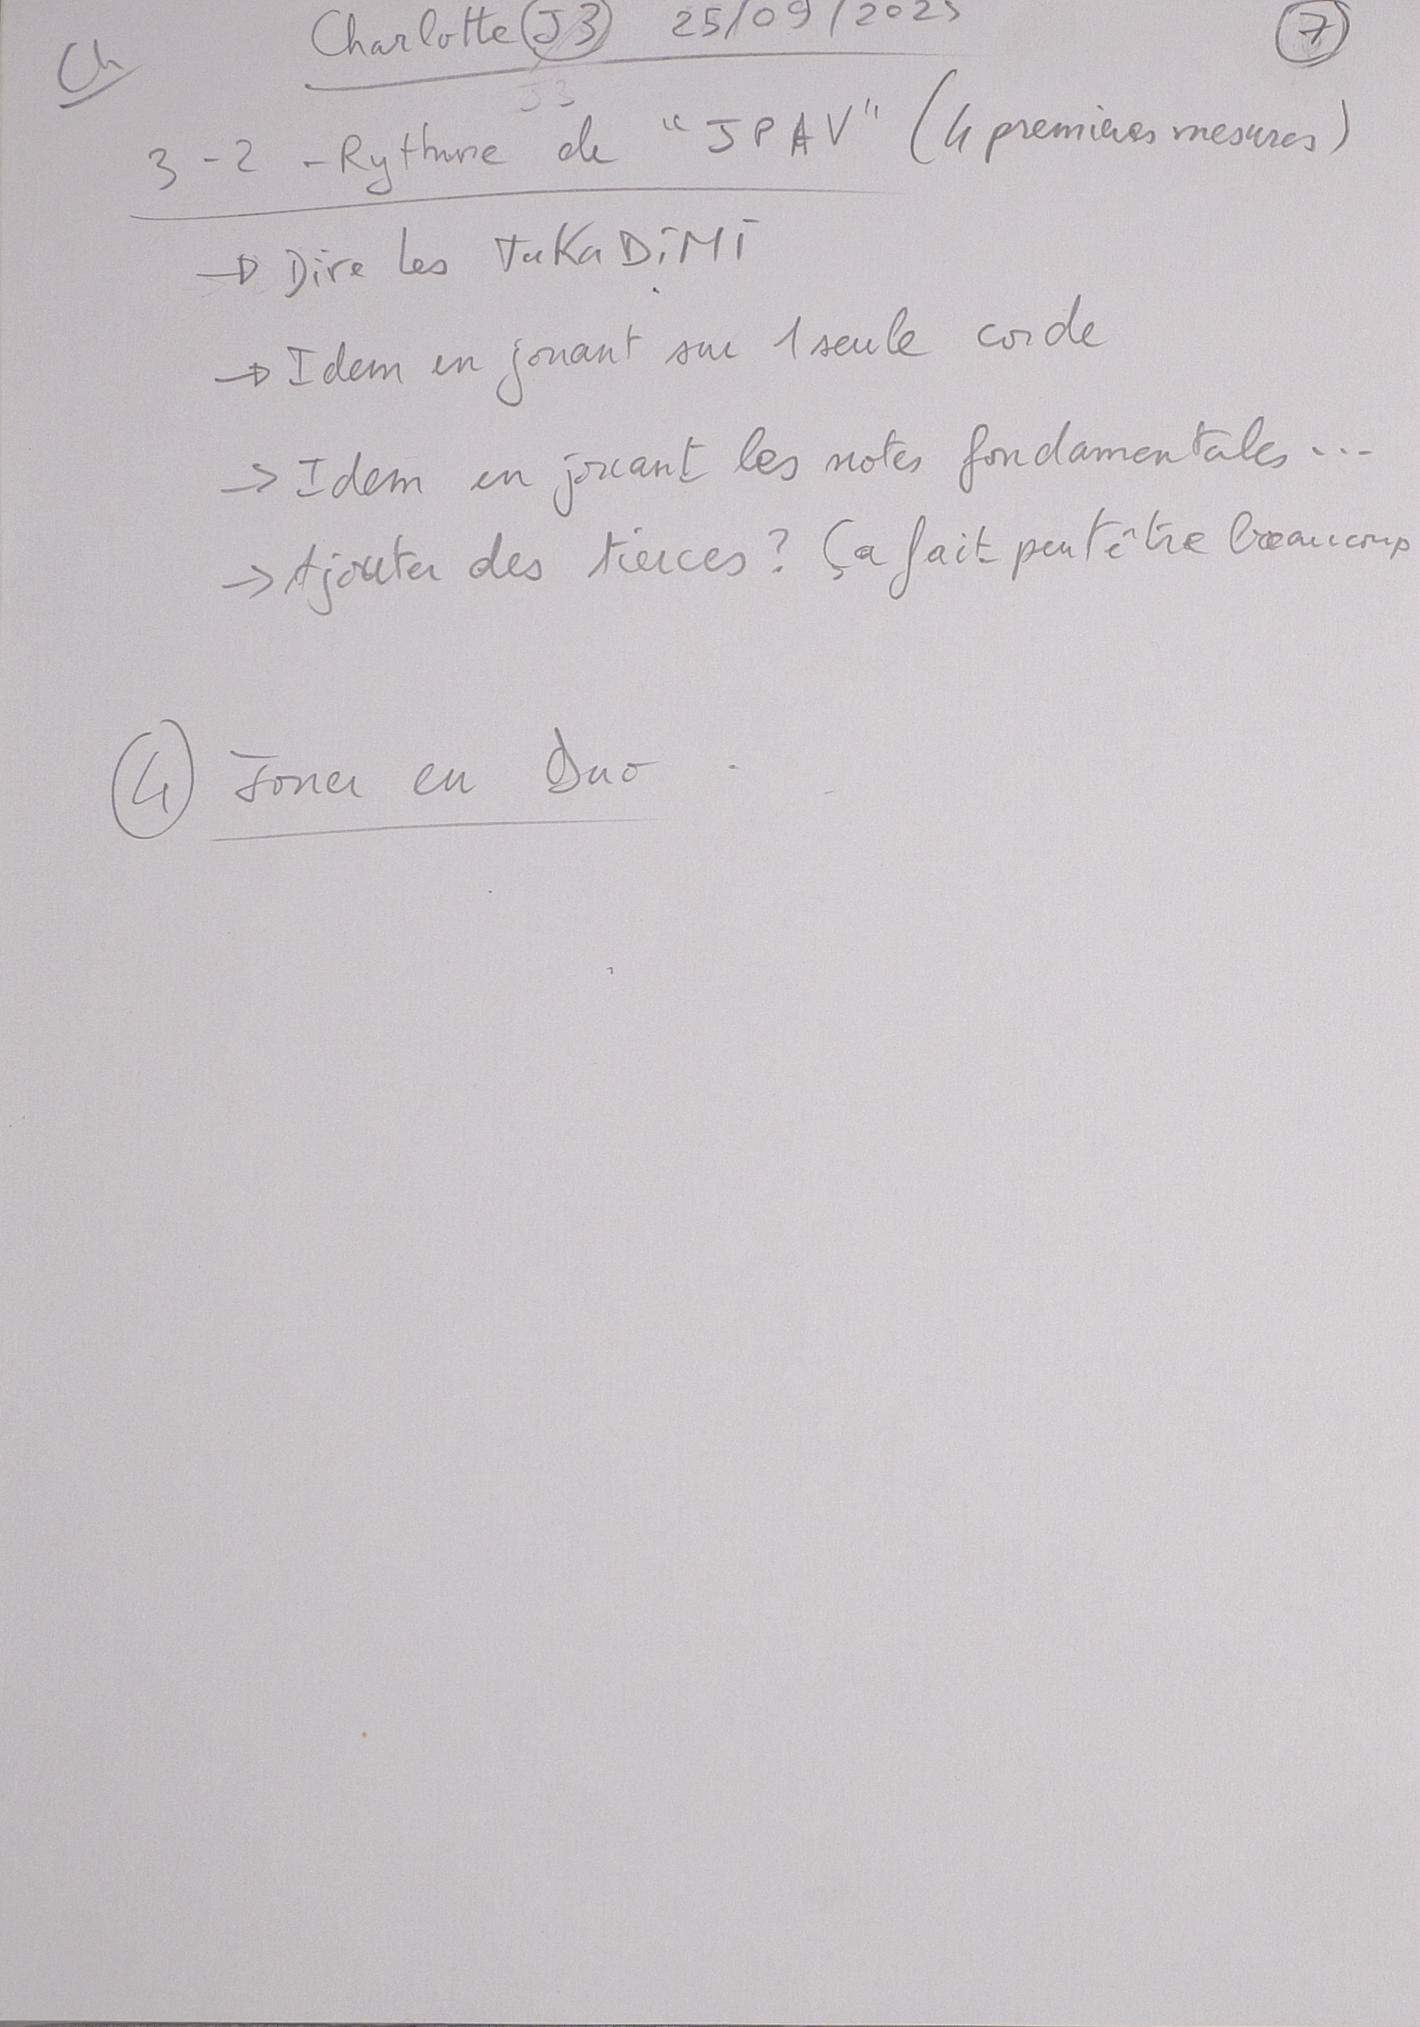 Ch
Charlotte J3 25/09/2025
7
J3
3-2 - Rythme de "JPAV" (4 premières mesures)
→ Dire les TaKaDiMi
→ Idem en jouant sur 1 seule corde
→ Idem en jouant les notes fondamentales...
→ Ajouter des tierces? Ça fait peut être beaucoup
4 Jouer en Duo.